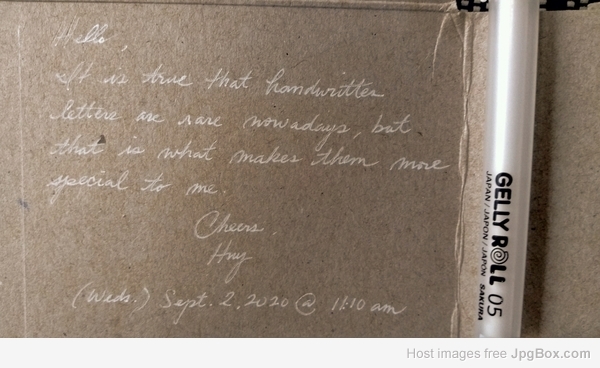 Hello,
It is true that handwritten
letters are rare nowadays, but
that is what makes them more
special to me.
Cheers,
(Weds.) Sept. 2, 2020 @ 11:10 am
GELLY ROLL 05
JAPAN / JAPON / JAPON SAKURA
Host images free JpgBox.com